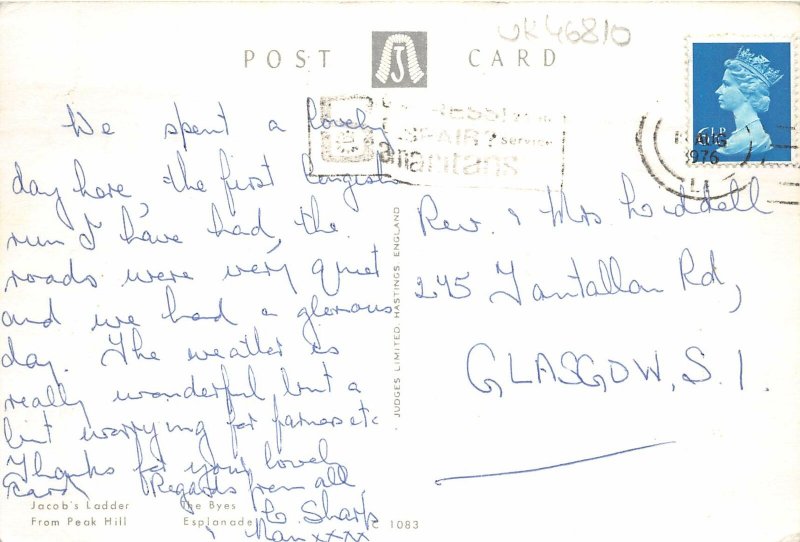 UK46810
POST CARD
6½P
AUG
1976
Samaritans
Service
We spent a lovely
day here, the first longish
run I have had, the
roads were very quiet
and we had a glorious
day. The weather is
really wonderful, but a
bit worrying for farmers etc
Thanks for your lovely
card Regards from all
E. Sharp
& Nan xxxx
Rev. & Mrs Liddell
245 Tantallan Rd,
GLASGOW, S.1.
JUDGES LIMITED, HASTINGS ENGLAND
Jacob's Ladder The Byes
From Peak Hill Esplanade
C 1083